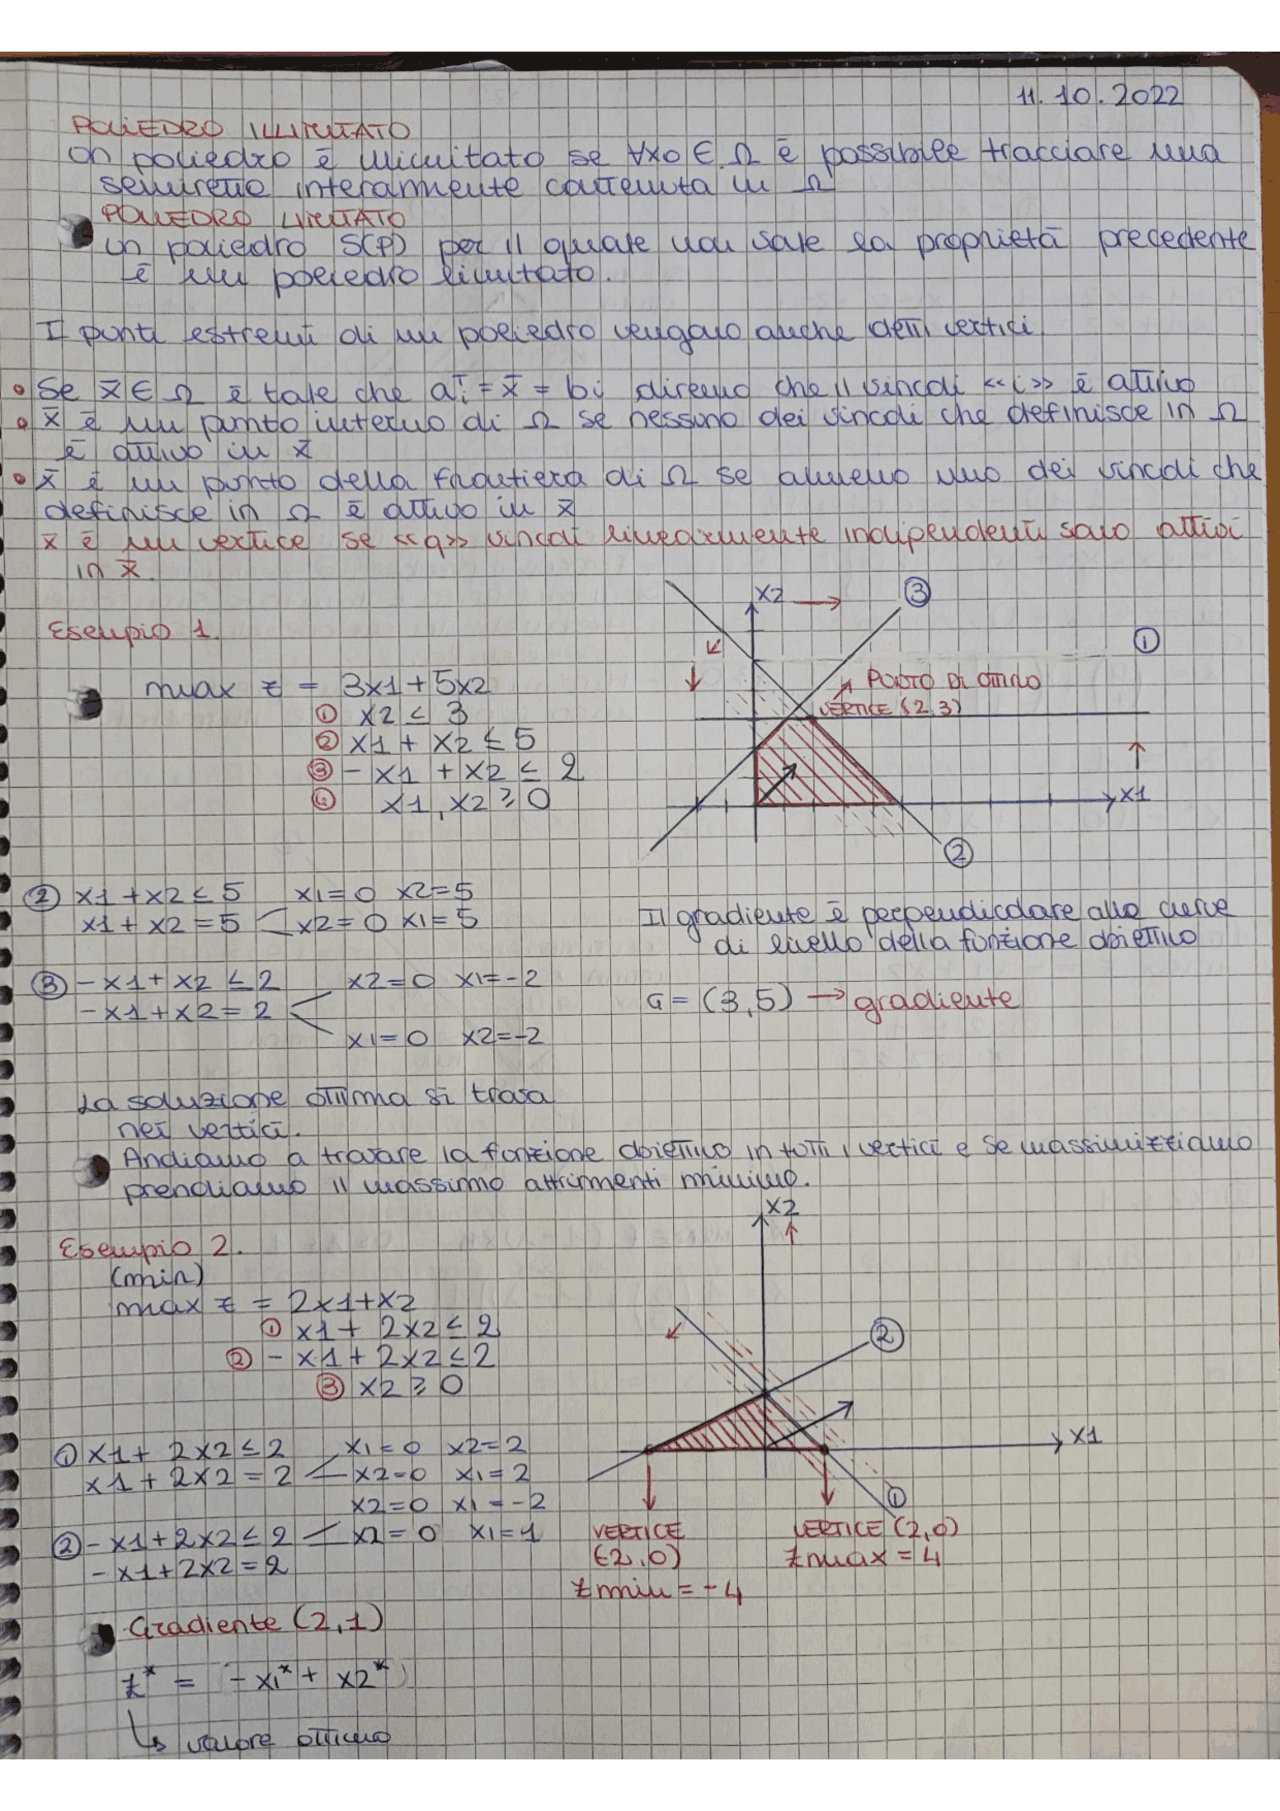 11.10.2022
POLIEDRO ILLIMITATO
Un poliedro è illimitato se ∀x0 ∈ Ω è possibile tracciare una
semiretta interamente contenuta in Ω
POLIEDRO LIMITATO
Un poliedro S(P) per il quale non vale la proprietà precedente
è un poliedro limitato.
I punti estremi di un poliedro vengono anche detti vertici
• Se x̄ ∈ Ω è tale che aᵢᵀ = x̄ = bi diremo che il vincoli «i» è attivo
• x̄ è un punto interno di Ω se nessuno dei vincoli che definisce in Ω
è attivo in x̄
• x̄ è un punto della frontiera di Ω se almeno uno dei vincoli che
definisce in Ω è attivo in x̄
x̄ è un vertice se «q» vincoli linearmente indipendenti sono attivi
in x̄.
Esempio 1.
max z = 3x1 + 5x2
① x2 ≤ 3
② x1 + x2 ≤ 5
③ - x1 + x2 ≤ 2
④ x1, x2 ≥ 0
X2
③
①
PUNTO DI OTTIMO
VERTICE (2,3)
X1
②
② x1 + x2 ≤ 5 x1 = 0 x2 = 5
x1 + x2 = 5 x2 = 0 x1 = 5
Il gradiente è perpendicolare alle curve
di livello della funzione obiettivo
③ - x1 + x2 ≤ 2 x2 = 0 x1 = -2
- x1 + x2 = 2
x1 = 0 x2 = -2
G = (3,5) → gradiente
La soluzione ottima si trova
nei vertici.
Andiamo a trovare la funzione obiettivo in tutti i vertici e se massimizziamo
prendiamo il massimo altrimenti minimo.
Esempio 2.
(min)
max z = 2x1 + x2
① x1 + 2x2 ≤ 2
② - x1 + 2x2 ≤ 2
③ x2 ≥ 0
X2
②
X1
①
① x1 + 2x2 ≤ 2 x1 = 0 x2 = 2
x1 + 2x2 = 2 x2 = 0 x1 = 2
x2 = 0 x1 = -2
② - x1 + 2x2 ≤ 2 x2 = 0 x1 = 1
- x1 + 2x2 = 2
VERTICE
(-2,0)
z min = -4
VERTICE (2,0)
z max = 4
Gradiente (2,1)
z* = - x1* + x2*
↳ valore ottimo